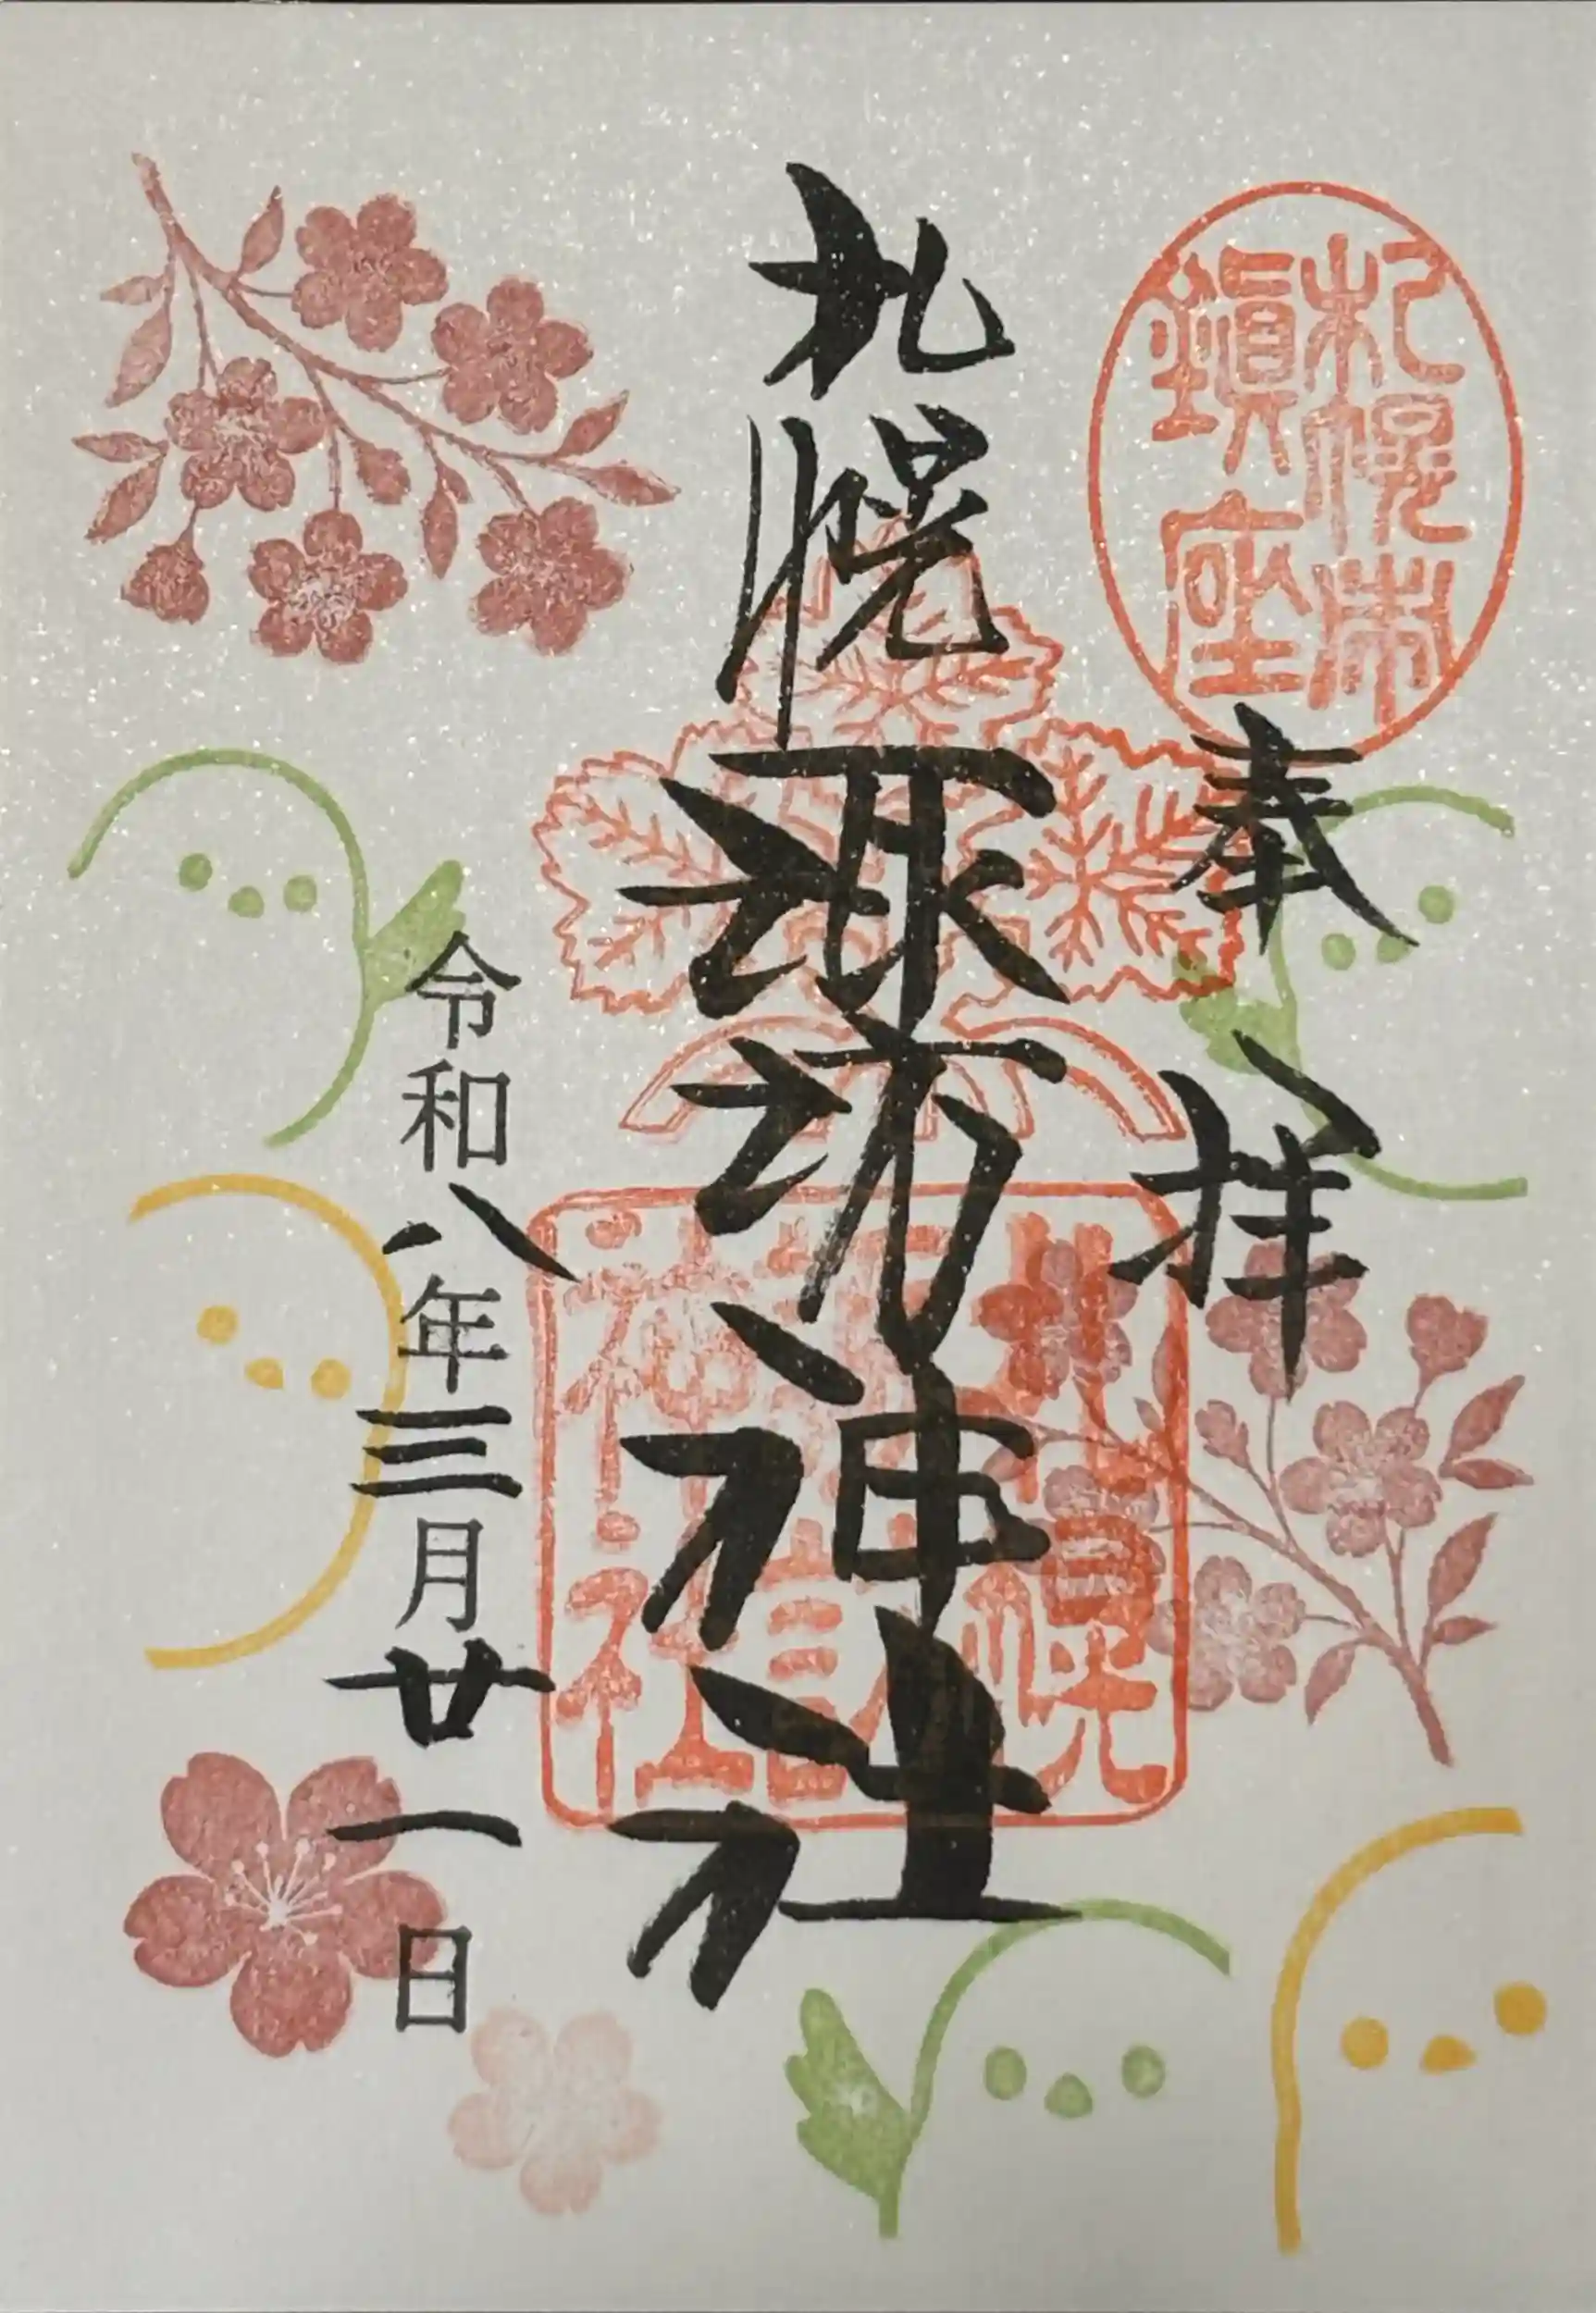 札幌市
鎮座
奉拝
札幌諏訪神社
札幌
諏訪
神社
令和八年三月廿一日